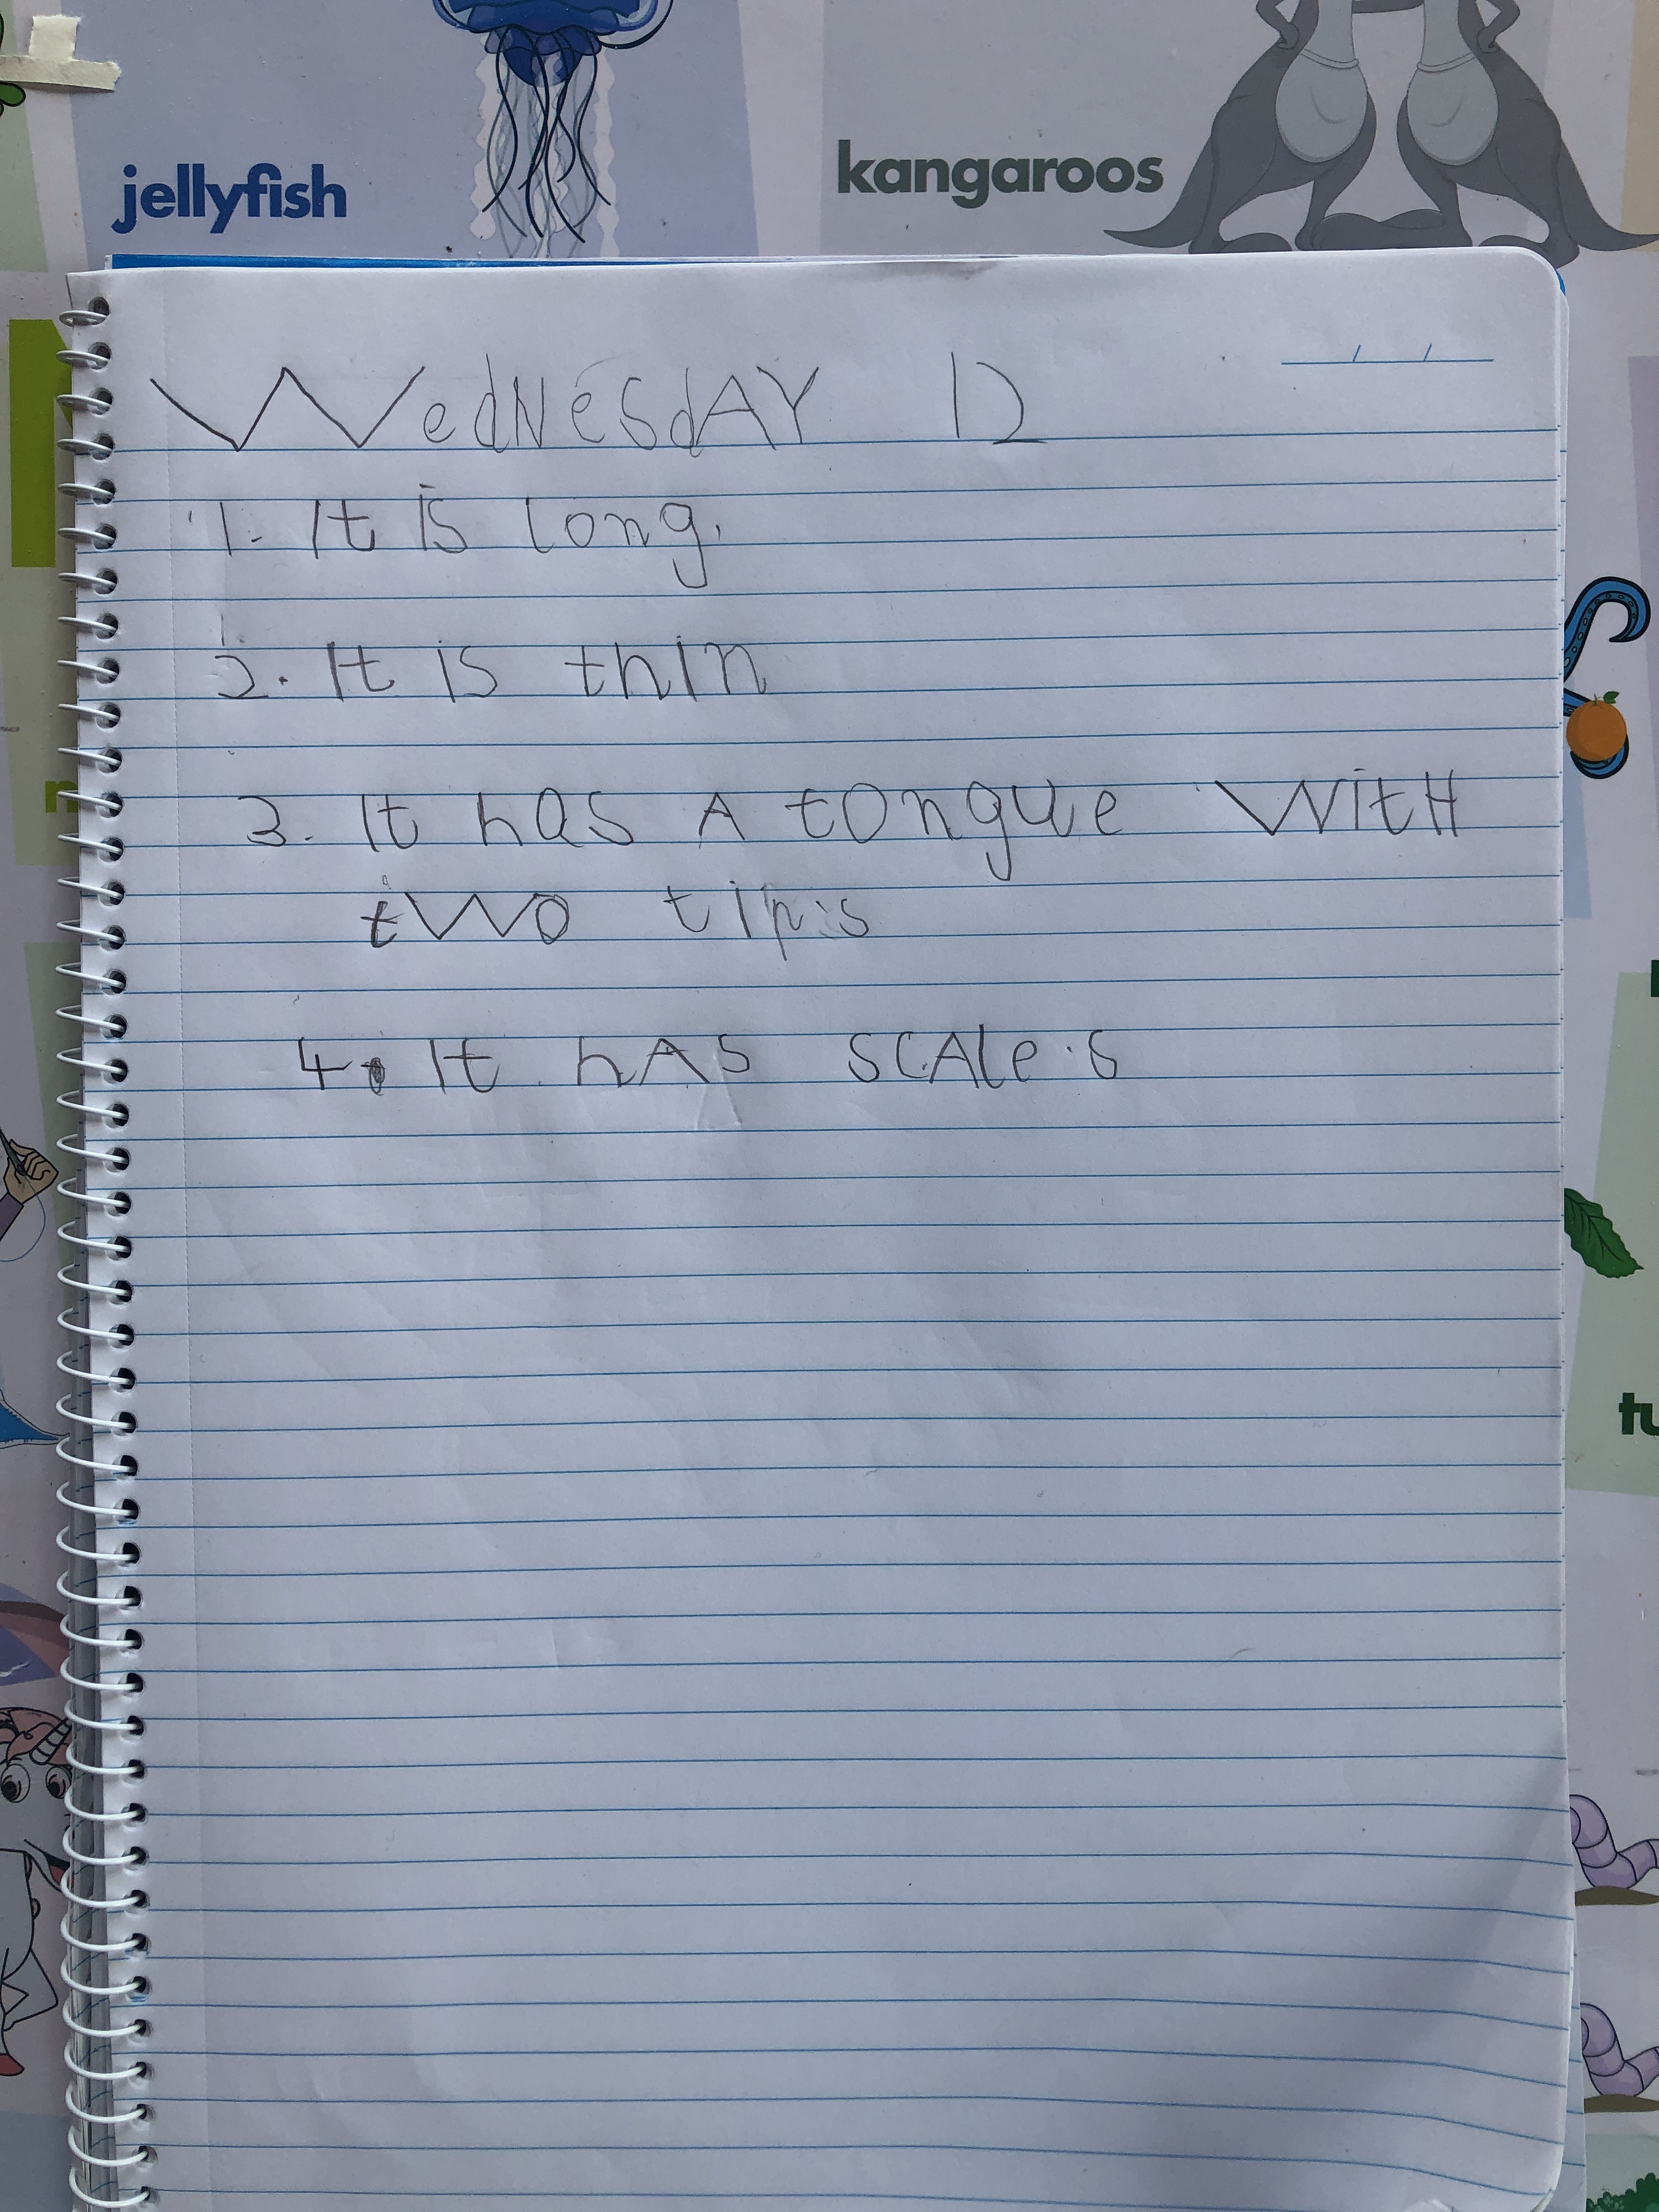 jellyfish
kangaroos
WedNesdAY 12
1. It is long.
2. It is thin
3. It has A tongue WitH
two tips
4. It hAS SCAleS
tu